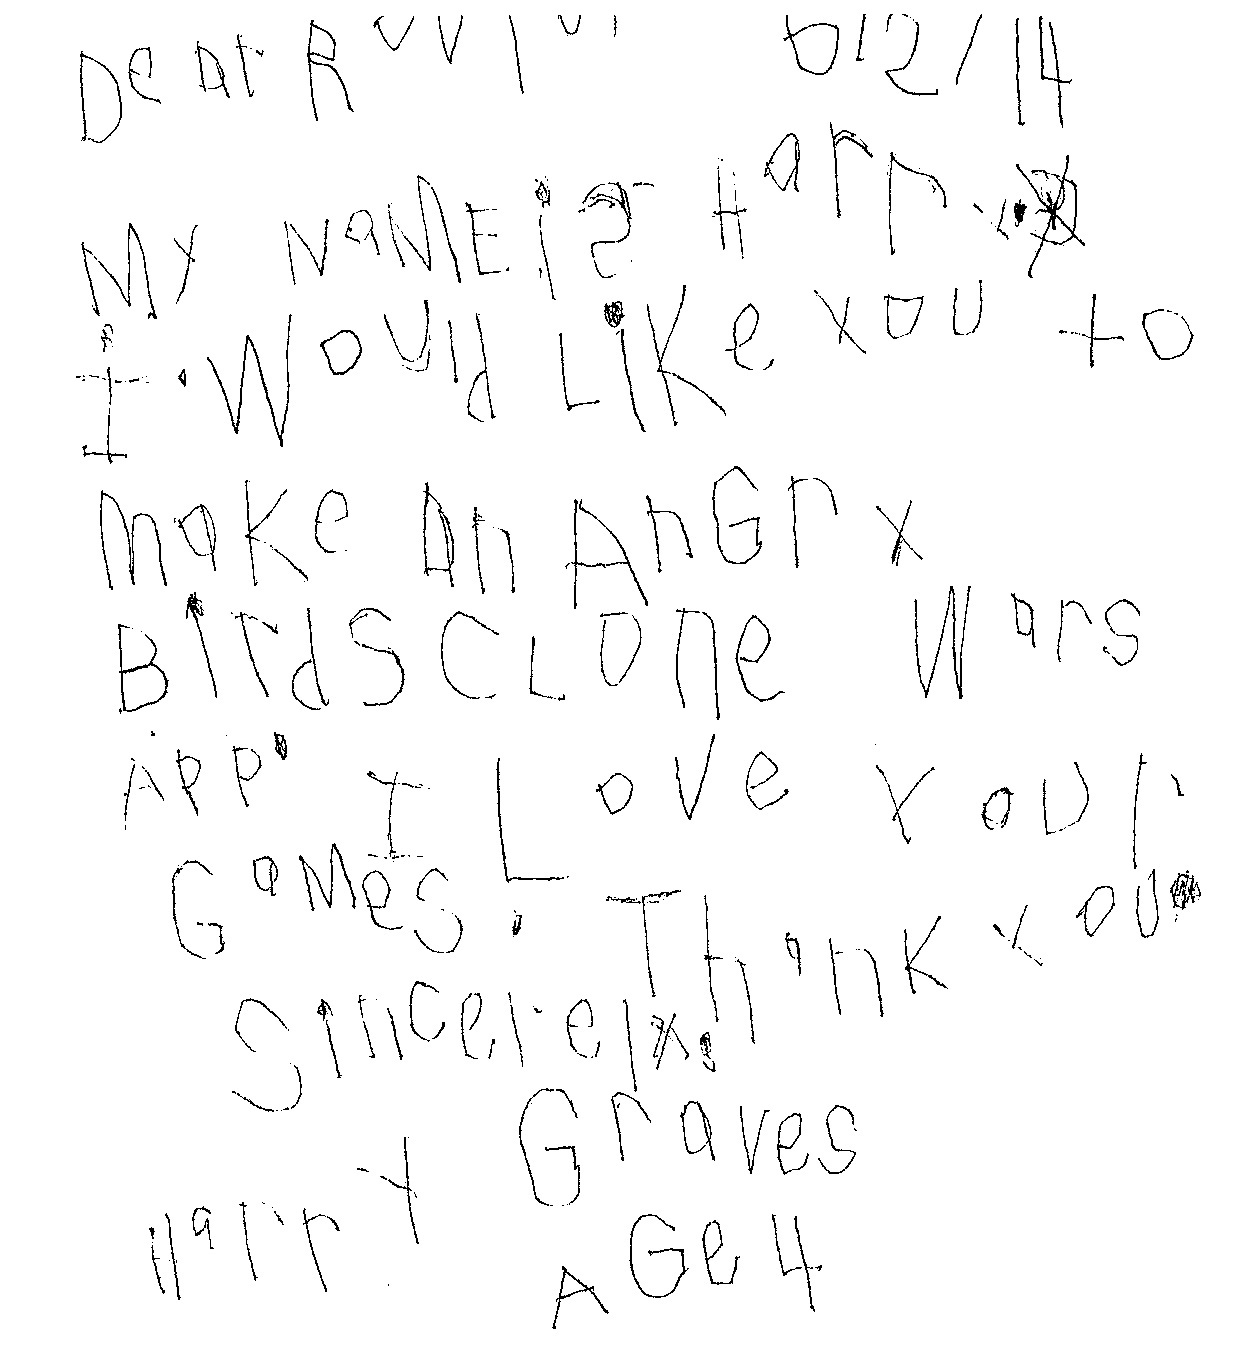 Dear Rovio 6/2/14
My NaME is Harry.
I Would Like You to
Make An AnGry
BirdS CLone Wars
App. I Love Your
GaMes. Thank You.
Sincerely,
Harry Graves
AGe 4